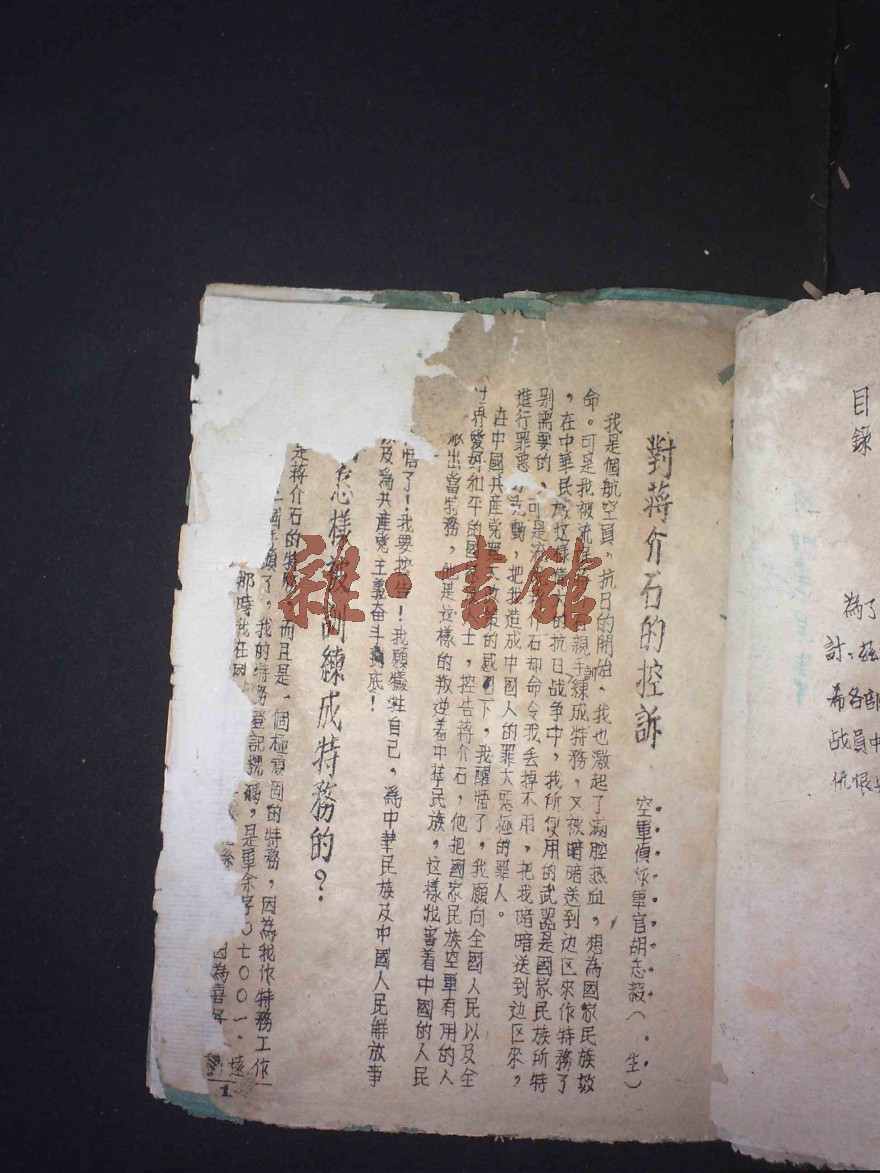 目錄
為了
討、茲
希各部
战員中
仇恨與
對蔣介石的控訴
空軍偵炸軍官胡志毅(生)
我是個航空員。抗日的開始、我也激起了滿腔熱血,想為國家民族效
命。可是我被流親手訓練成特務,又被暗暗送到边区來作特務了
,在中華民族这樣的抗日战争中,我所使用的武器是國家民族所特
别需要的、可是介石却命令我丢掉不用,把我暗暗送到边区來,
進行罪惡動,把我造成中國人的罪大惡極的罪人。
在中國共產党寬大政策的感召下,我醒悟了,我願向全國人民以及全
世界愛好和平的國士,控告蔣介石,他把國家民族空軍有用的人
派出當特務,他是这樣的叛逆着中華民族,这樣戕害着中國的人民
悟了!我要控告!我願犧牲自己,為中華民族及中國人民解放事
及為共產党主義奋斗到底!
怎樣被訓練成特務的?
是蔣介石的特務,而且是一個極頑固的特務,因為我作特務工作
個年頭了,我的特務登記號碼,是軍余字〇七〇〇一.
那時我在
因為喜
1
雜·書館